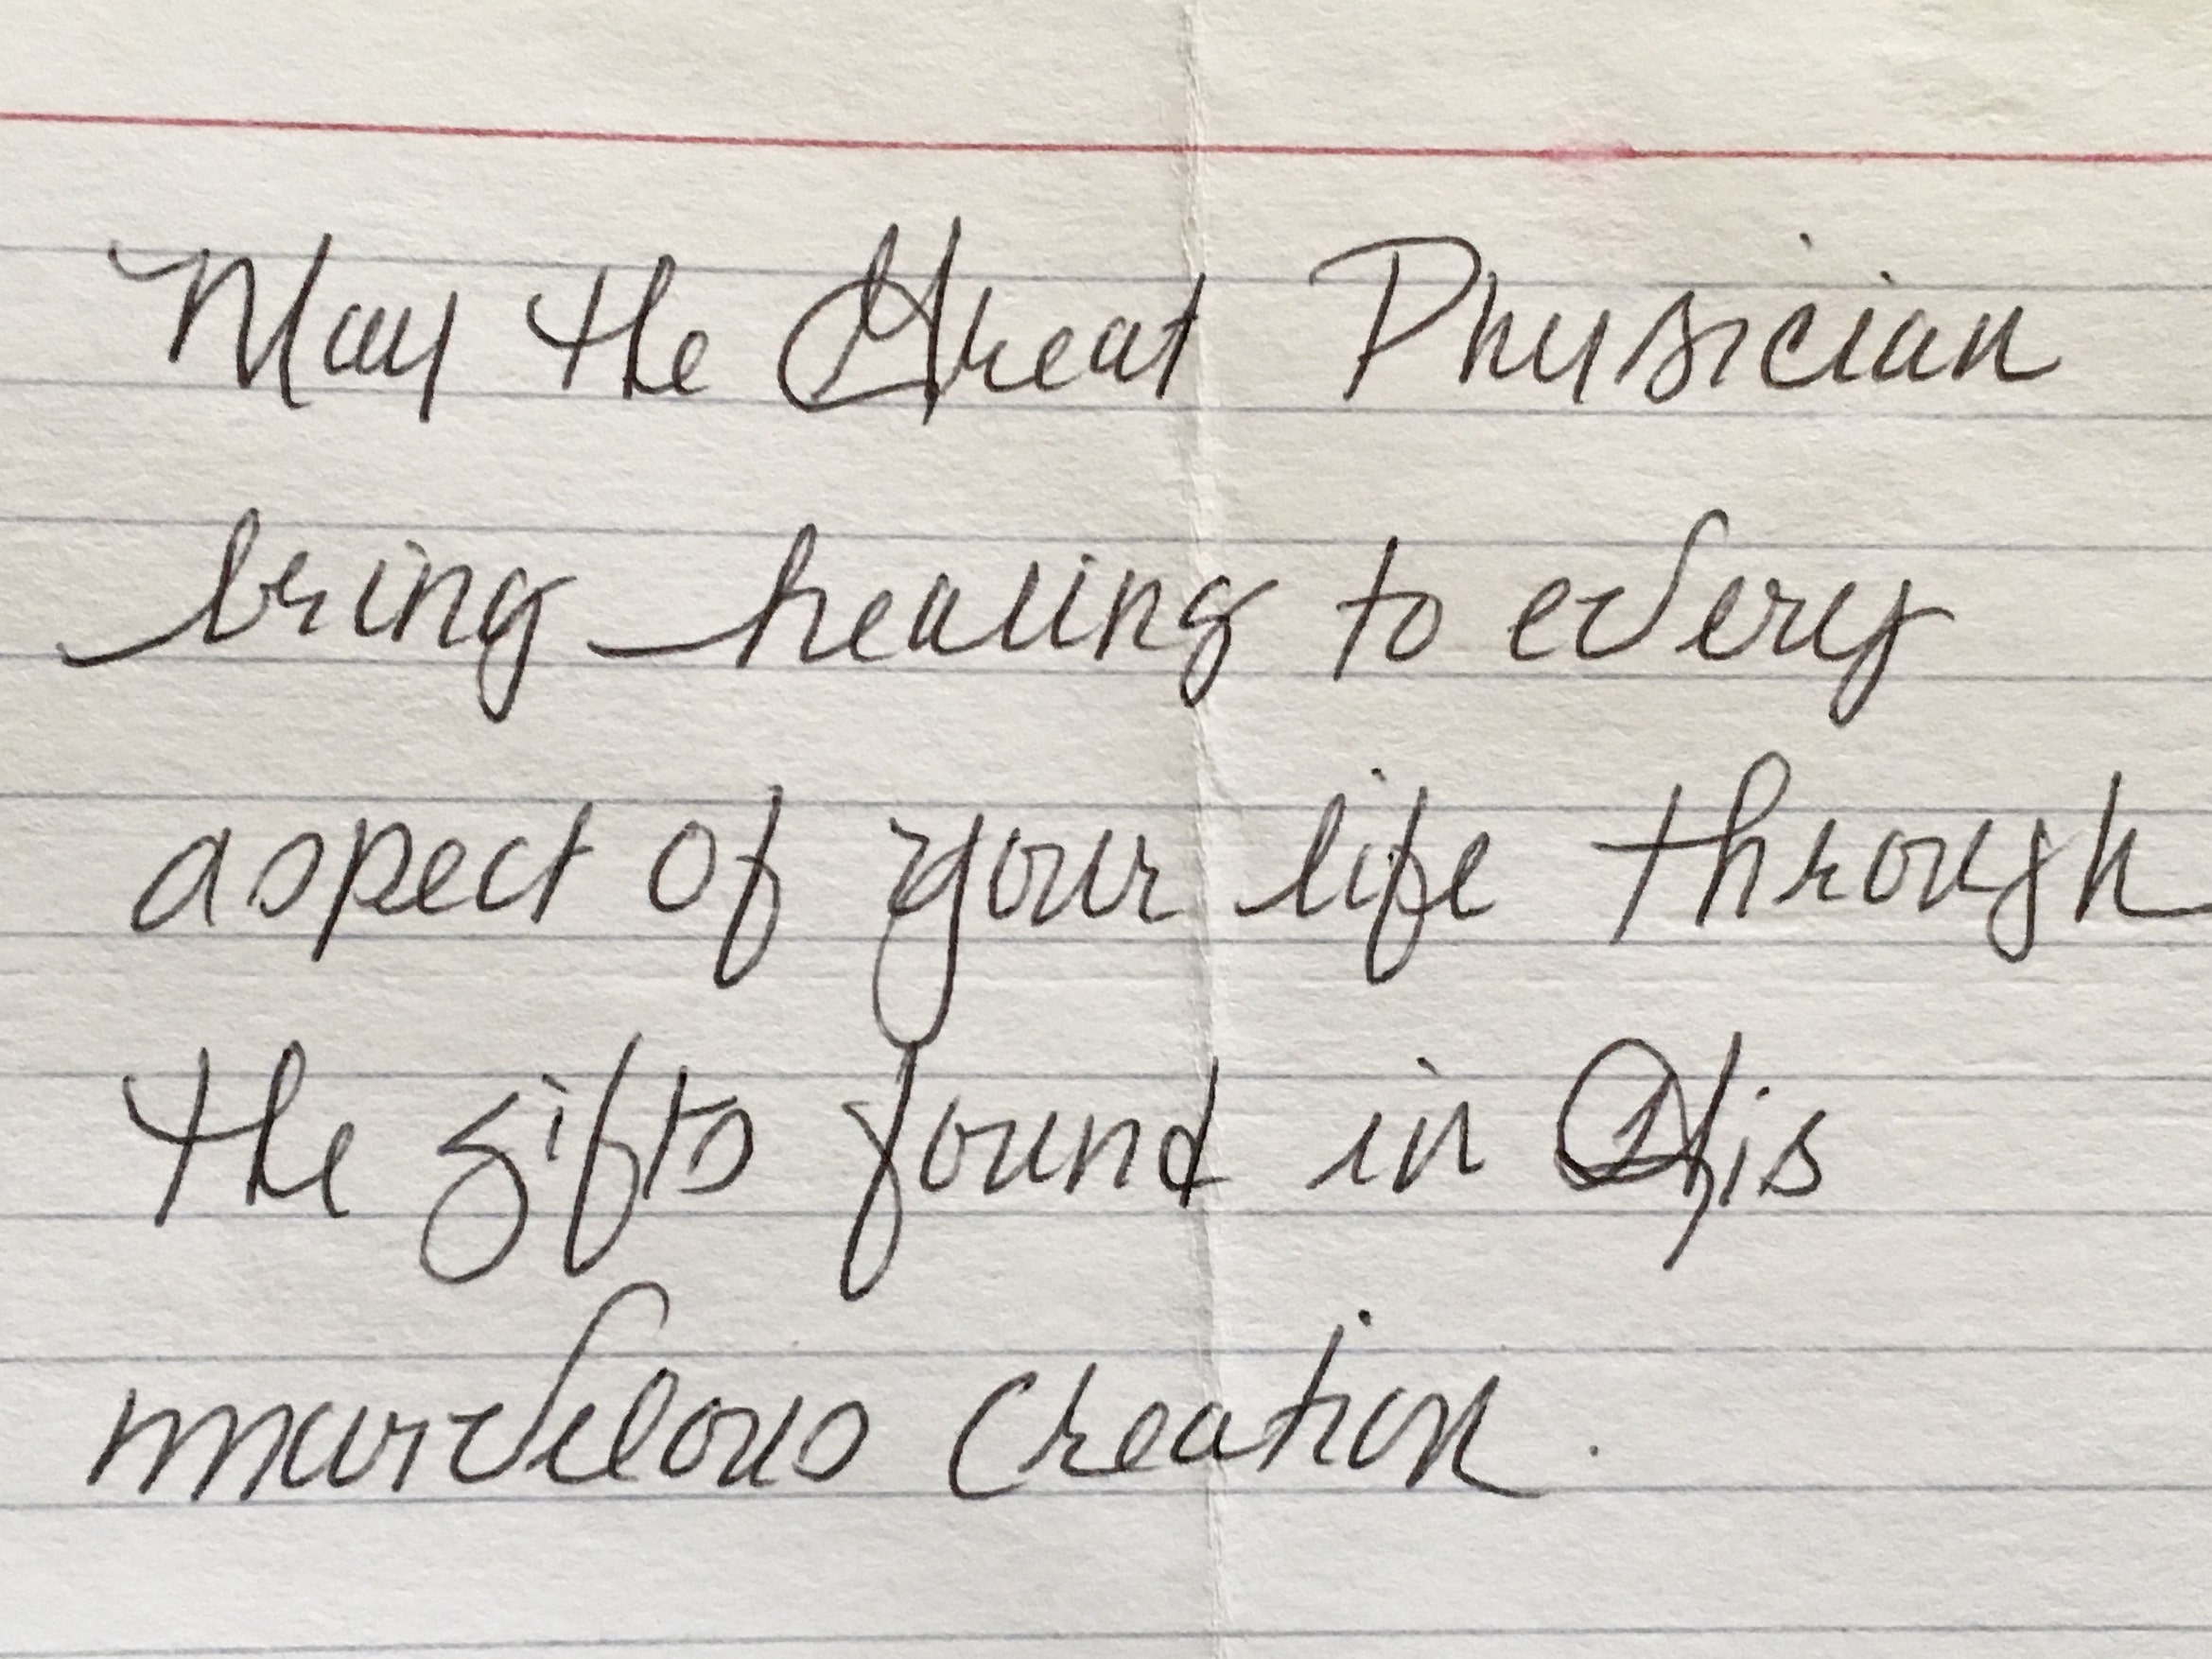 May the Great Physician
bring healing to every
aspect of your life through
the gifts found in His
marvelous creation.